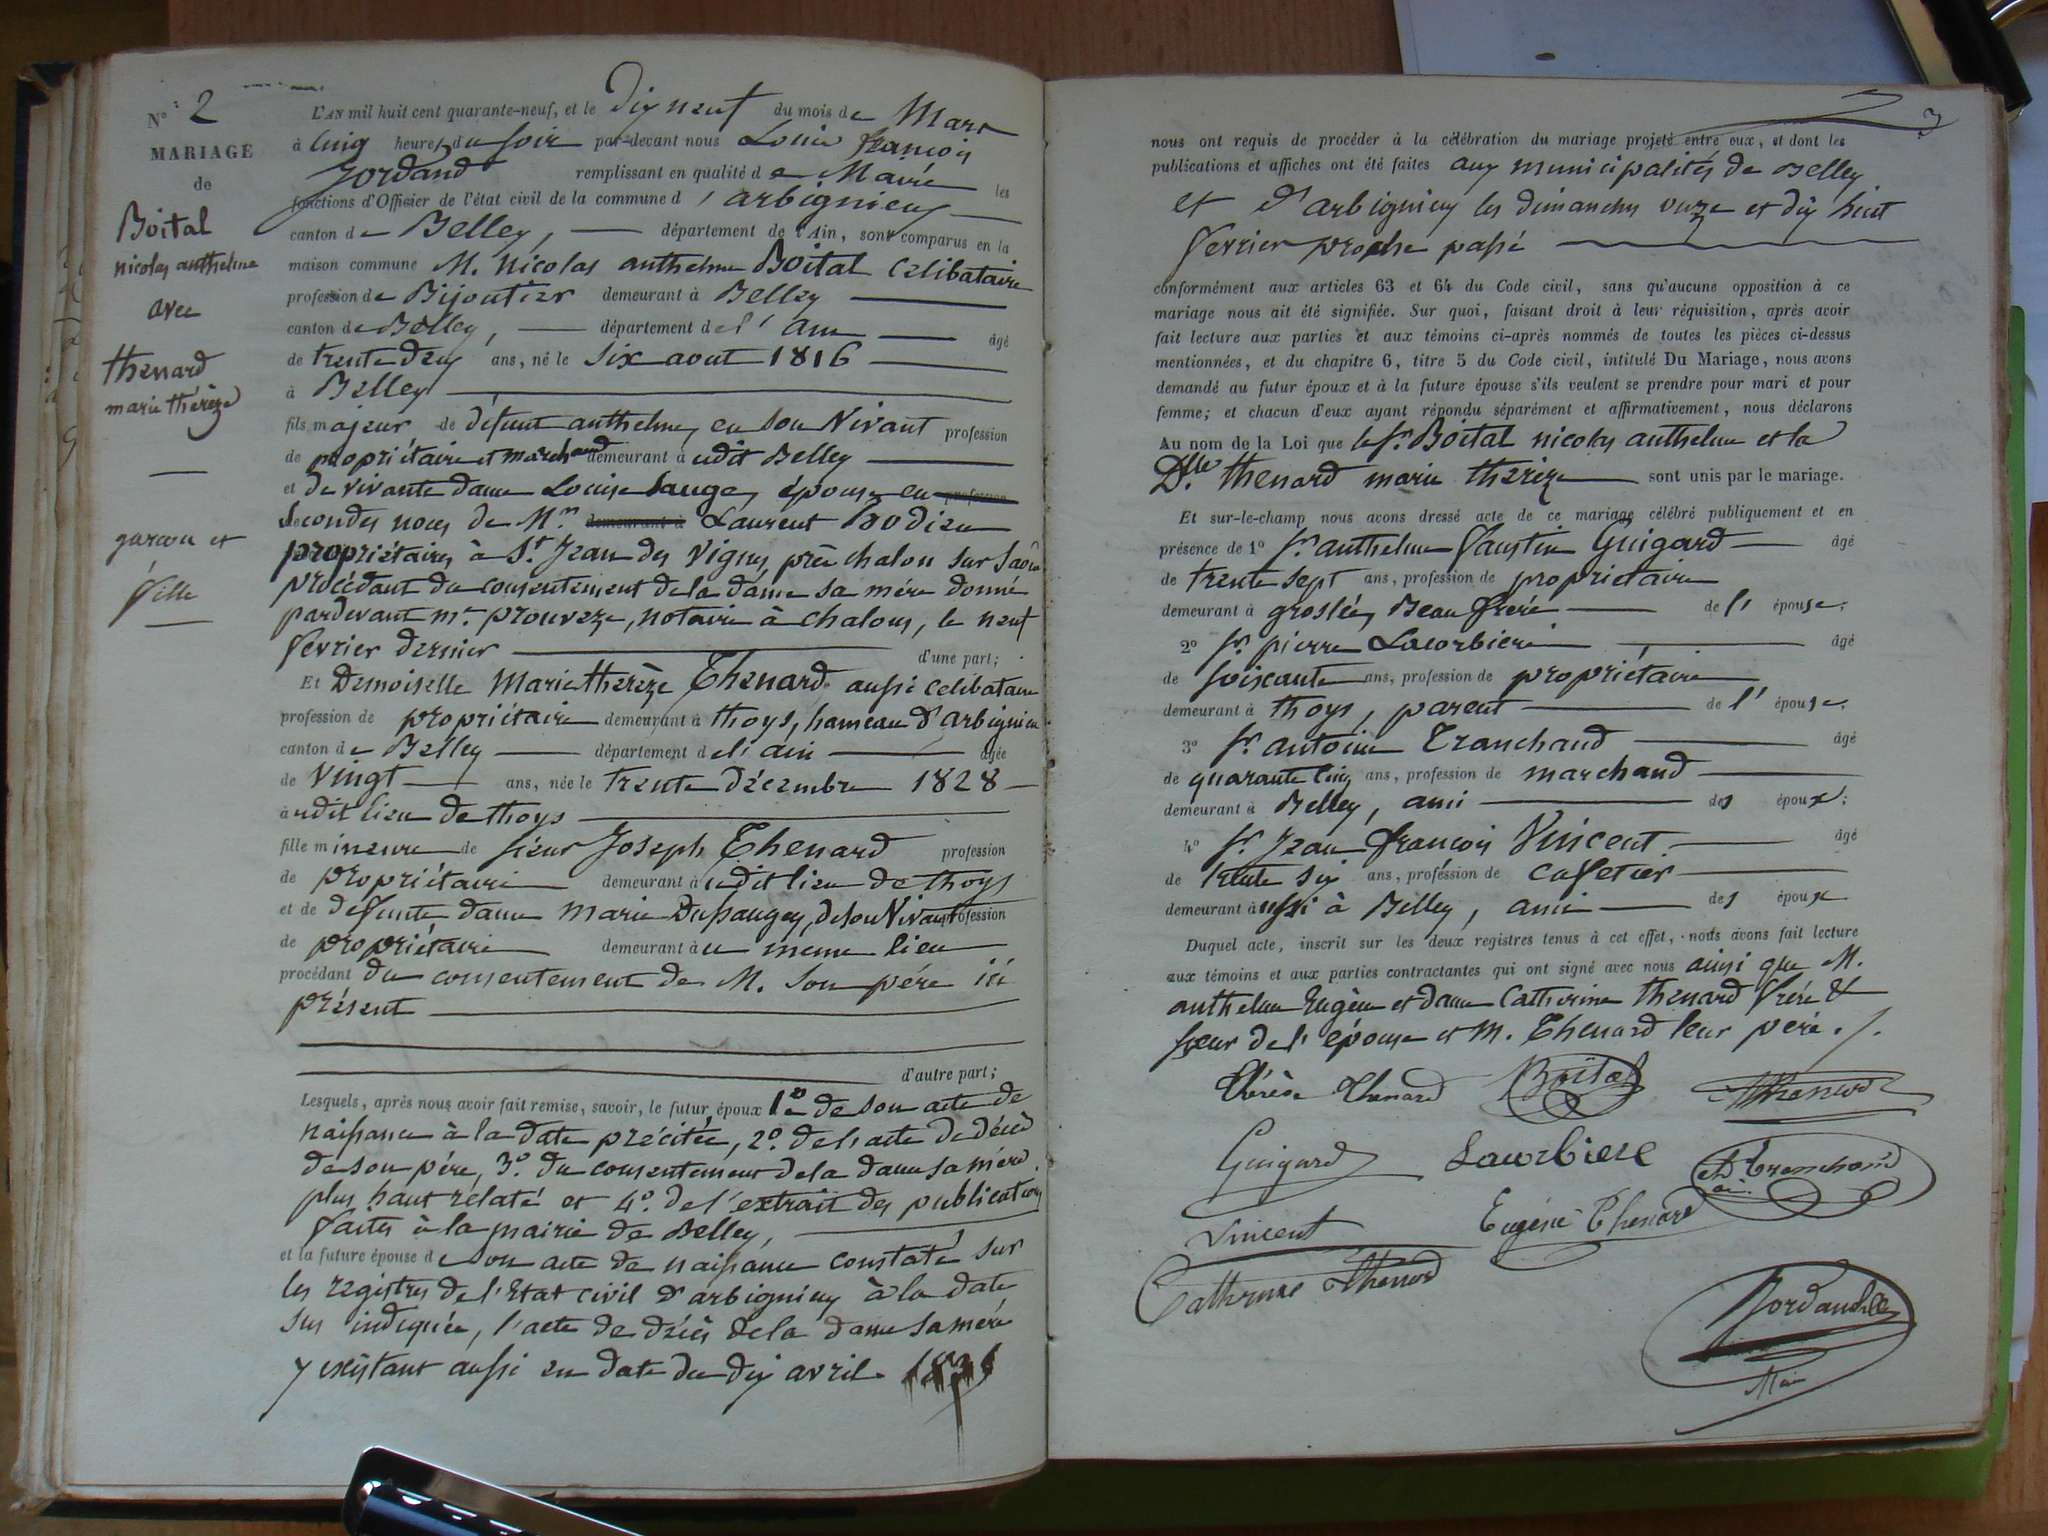 N° 2
MARIAGE
de
Boital
nicolas anthelme
avec
thenard
marie thérèze
garçon et
fille
L'AN mil huit cent quarante-neuf, et le dix neuf du mois de Mars
à cinq heures du soir par-devant nous Louis françois
Jordand remplissant en qualité de Maire les
fonctions d'Officier de l'état civil de la commune d'arbignieu
canton de Belley, département de l'Ain, sont comparus en la
maison commune M. Nicolas anthelme Boital celibataire
profession de Bijoutier demeurant à Belley
canton de Belley, département de l'ain âgé
de trente deux ans, né le six aout 1816
à Belley
fils majeur de défunt anthelme, en son vivant profession
de propriétaire et marchand demeurant à udit Belley
et de vivante dame Louise Sauge, épouse en profession
secondes noces de Mr. demeurant à Laurent Bodieu
propriétaires à St. Jean des Vignes, près chalon sur Saône
procédant du consentement de la dame sa mère donné
pardevant me. prouveze, notaire à chalons, le neuf
fevrier dernier d'une part;
Et Demoiselle Marie thérèze Thenard aussi celibataire
profession de propriétaire demeurant à thoys, hameau d'arbignieu
canton de Belley département de l'ain âgée
de vingt ans, née le trente décembre 1828
à udit lieu de thoys
fille mineure de sieur Joseph Thenard profession
de propriétaire demeurant à udit lieu de thoys
et de defunte dame marie Dupaugey, de son vivant profession
de propriétaire demeurant à u meme lieu
procédant du consentement de M. son père ici
présent
d'autre part;
Lesquels, après nous avoir fait remise, savoir, le futur époux 1° de son acte de
naissance à la date précitée, 2°. de l'acte de décès
de son père, 3°. du consentement de la dame sa mère
plus haut relaté et 4°. de l'extrait des publications
faites à la mairie de Belley,
et la future épouse de son acte de naissance constaté sur
les registres de l'Etat civil d'arbignieu à la date
sus indiquée, l'acte de décès de la dame sa mère
y existant aussi en date du dix avril
3
nous ont requis de procéder à la célébration du mariage projeté entre eux, et dont les
publications et affiches ont été faites aux municipalités de Belley
et d'arbignieu les dimanches onze et dix huit
fevrier proche passé
conformément aux articles 63 et 64 du Code civil, sans qu'aucune opposition à ce
mariage nous ait été signifiée. Sur quoi, faisant droit à leur réquisition, après avoir
fait lecture aux parties et aux témoins ci-après nommés de toutes les pièces ci-dessus
mentionnées, et du chapitre 6, titre 5 du Code civil, intitulé Du Mariage, nous avons
demandé au futur époux et à la future épouse s'ils veulent se prendre pour mari et pour
femme; et chacun d'eux ayant répondu séparément et affirmativement, nous déclarons
Au nom de la Loi que le sr. Boital nicolas anthelme et la
Dlle. thenard marie thérèze sont unis par le mariage.
Et sur-le-champ nous avons dressé acte de ce mariage célébré publiquement et en
présence de 1° sr. anthelme faustin Guigard âgé
de trente sept ans, profession de propriétaire
demeurant à groslée, Beau frère de l'épouse;
2° sr. pierre Lacorbiere âgé
de soixante ans, profession de propriétaire
demeurant à thoys, parent de l'épouse,
3° sr. antoine Tranchand âgé
de quarante cinq ans, profession de marchand
demeurant à Belley, ami des époux;
4° sr. Jean françois Vincent âgé
de trente six ans, profession de cafetier
demeurant aussi à Belley, ami des époux
Duquel acte, inscrit sur les deux registres tenus à cet effet, nous avons fait lecture
aux témoins et aux parties contractantes qui ont signé avec nous ainsi que M.
anthelme Eugène et dame Catherine thenard frère &
soeur de l'épouse et M. Thenard leur père ./.
thérèse thenard Boital Thenard
Guigard Lacorbiere Tranchand
Vincent Eugène Thenard
Catherine thenard
Jordand